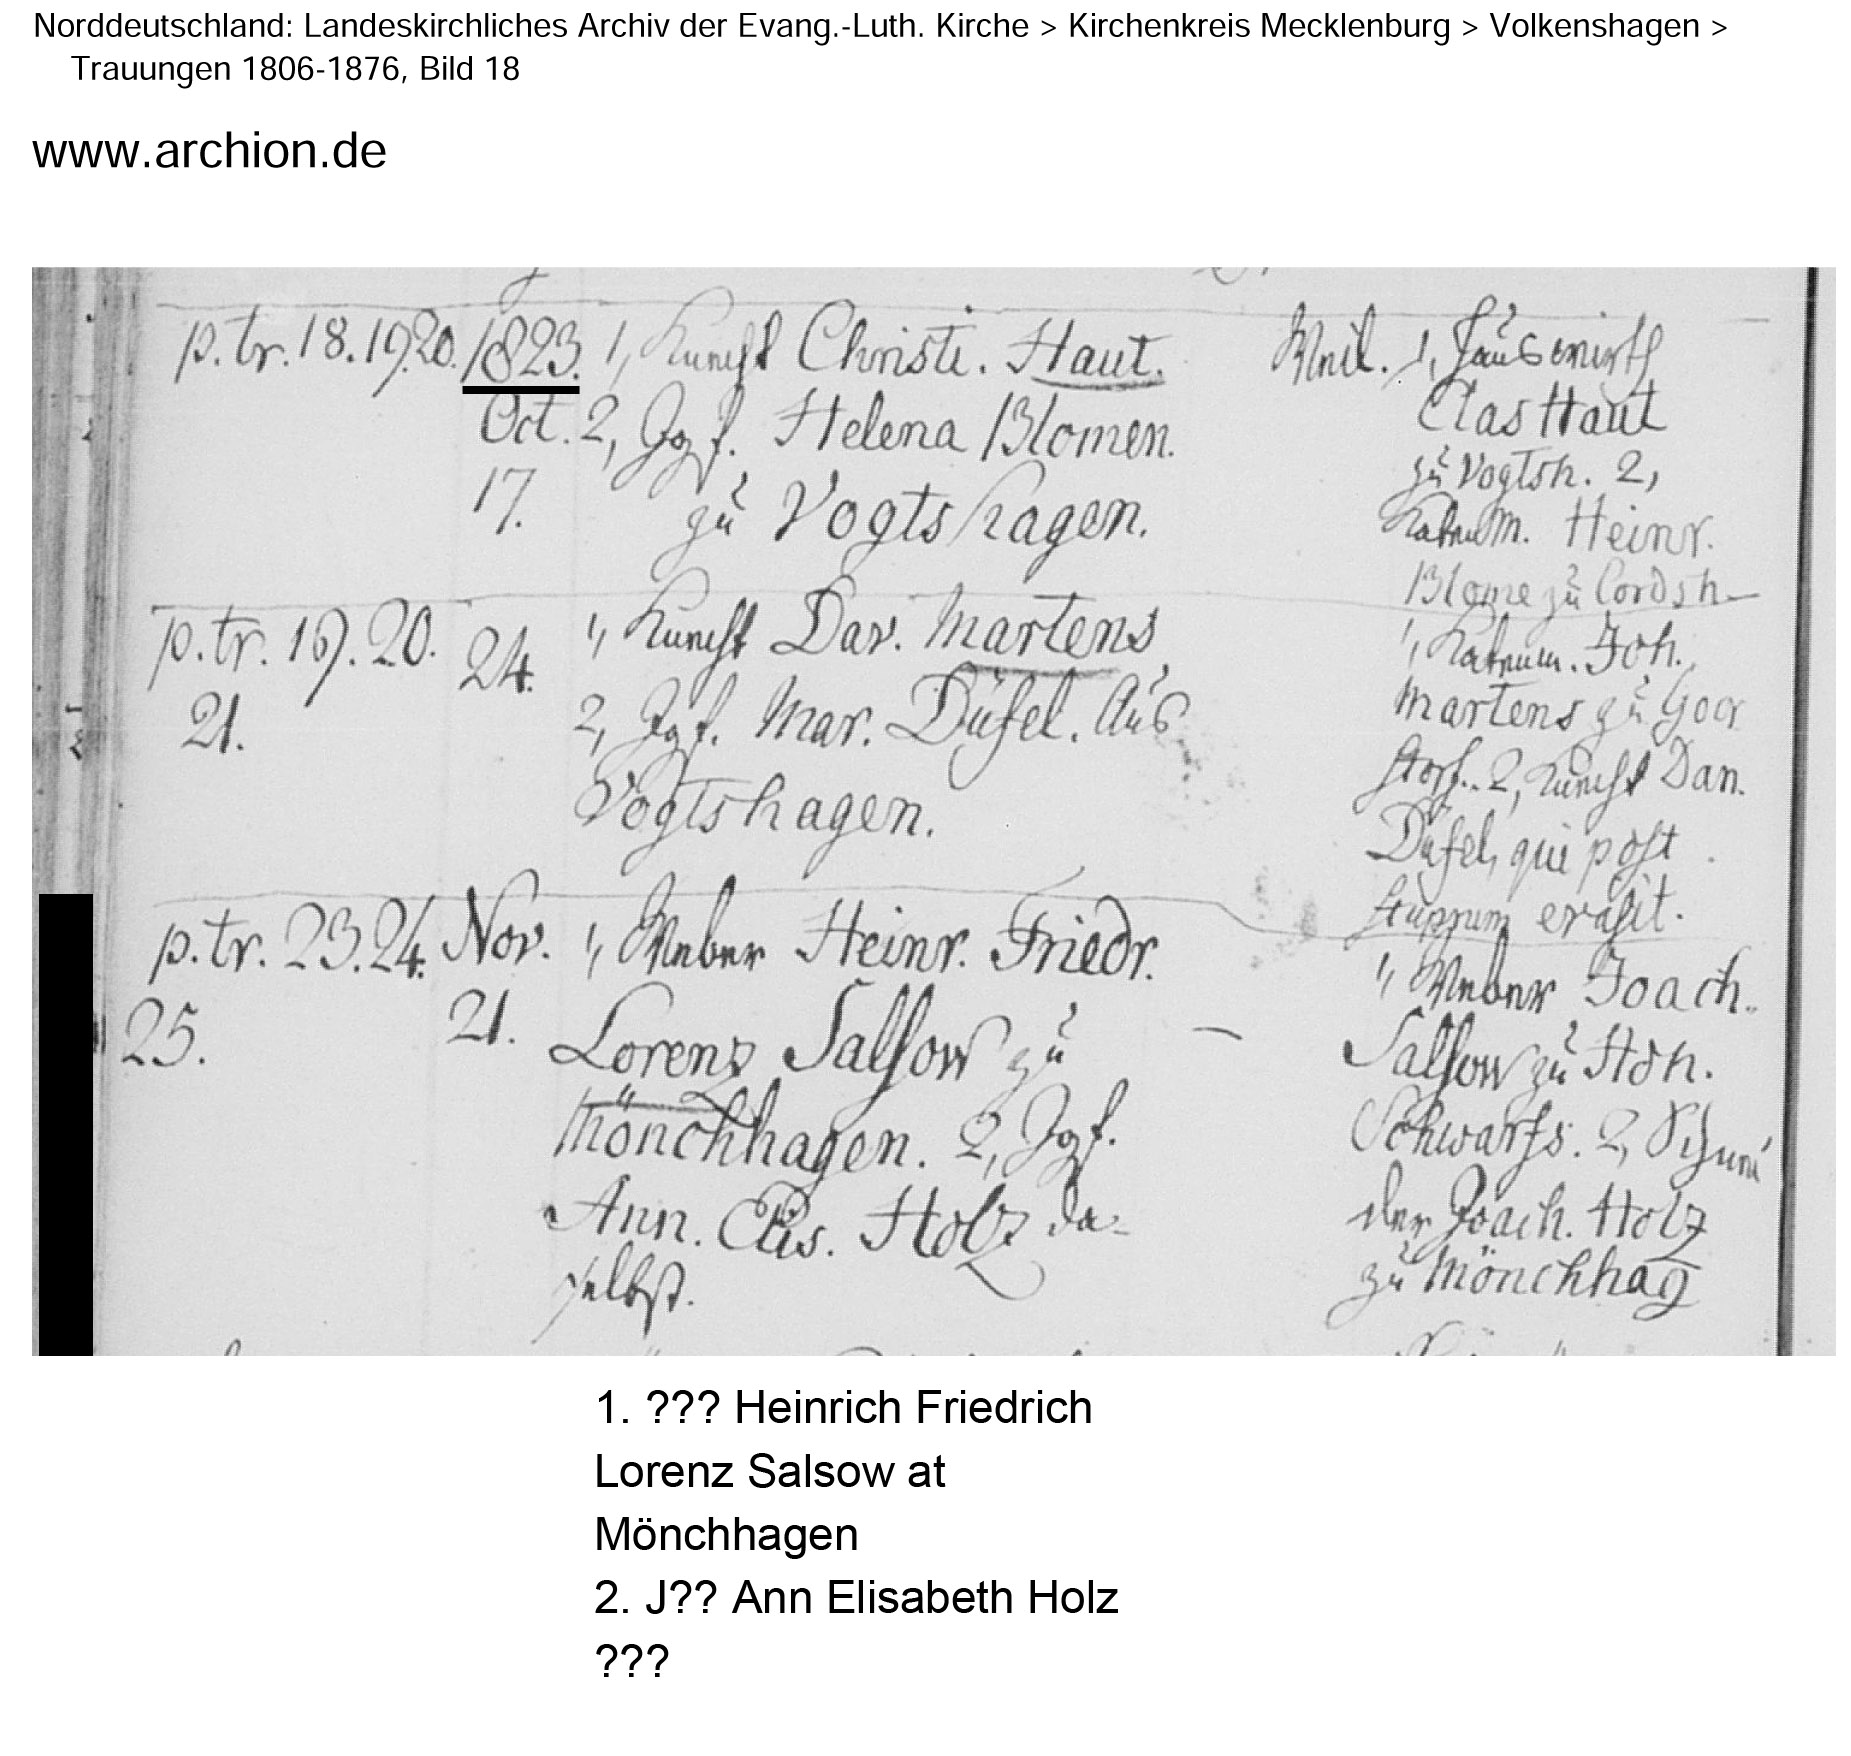 Norddeutschland: Landeskirchliches Archiv der Evang.-Luth. Kirche > Kirchenkreis Mecklenburg > Volkenshagen >
Trauungen 1806-1876, Bild 18
www.archion.de
p. tr. 18. 19. 20. 1823. 1, Knecht Christi. Haut. Mil. 1, Hauswirth
Oct. 2, Jgf. Helena Blomen. Clas Haut
17. zu Vogtshagen. zu Vogtsh. 2,
Katenm. Heinr.
Blome zu Cordsh
p. tr. 19. 20. 24. 1, Knecht Dav. Martens 1, Katenm. Joh.
21. 2, Jgf. Mar. Düfel. Aus Martens zu Goor
Vogtshagen. storf. 2, Knecht Dan.
Düfel, qui post
stuprum evasit.
p. tr. 23. 24. Nov. 1, Weber Heinr. Friedr. 1, Weber Joach.
25. 21. Lorenz Salsow zu – Salsow zu Hön.
Mönchhagen. 2, Jgf. Schwarfs. 2, Schnei
Ann. Elis. Holz da- der Joach. Holz
selbst. zu Mönchhag
1. ??? Heinrich Friedrich
Lorenz Salsow at
Mönchhagen
2. J?? Ann Elisabeth Holz
???